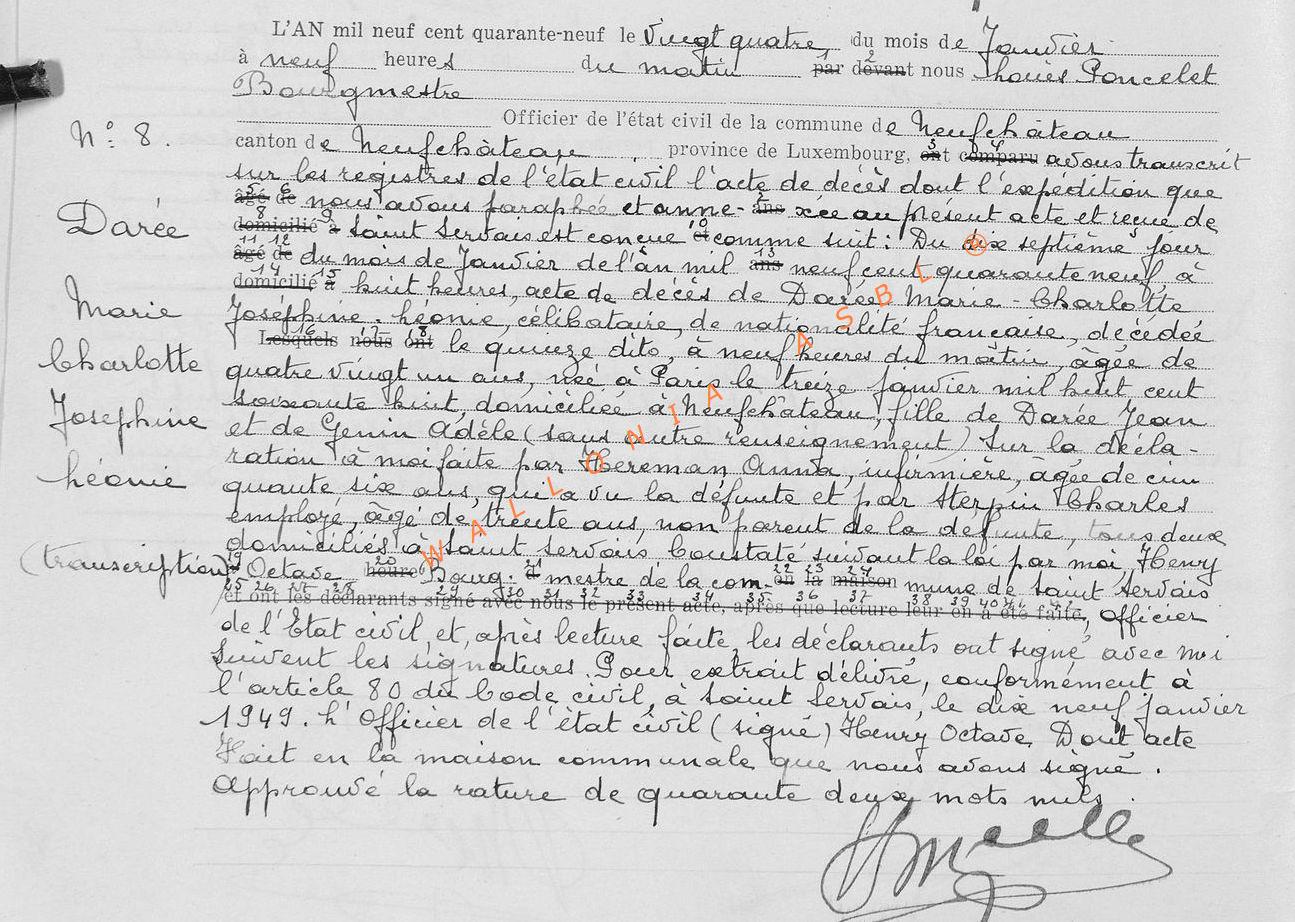 L'AN mil neuf cent quarante-neuf le vingt quatre, du mois de Janvier
à neuf heures du matin par devant nous Louis Poncelet
Bourgmestre
Officier de l'état civil de la commune de Neufchâteau
N° 8.
canton de Neufchâteau, province de Luxembourg, ont comparu avons transcrit
sur les registres de l'état civil l'acte de décès dont l'expédition que
âgé de nous avons paraphée et anne- ans xée au présent acte et reçue de
Darée
domicilié à Saint Servais est conçue et comme suit: Du dix septième jour
âgé de du mois de Janvier de l'an mil ans neuf cent quarante neuf, à
domicilié à huit heures, acte de décès de Darée Marie-Charlotte
Marie
Joséphine Léonie, célibataire, de nationalité française, décédée
Lesquels nous ont le quinze dito, à neuf heures du matin, âgée de
Charlotte
quatre vingt un ans, née à Paris le treize janvier mil huit cent
soixante huit, domiciliée à Neufchâteau, fille de Darée Jean
Josephine
et de Genin Adèle (sans autre renseignement) Sur la décla-
ration à moi faite par Hereman Anna, infirmière, âgée de cin
Léonie
quante six ans, qui a vu la défunte et par Sterpin Charles
employé, âgé de trente ans, non parent de la défunte, tous deux
domiciliés à Saint Servais Constaté suivant la loi par moi, Henry
(transcription)
Octave heure Bourg- d mestre de la com- en la maison mune de Saint Servais
et ont les déclarants signé avec nous le présent acte, après que lecture leur en a été faite, Officier
de l'Etat civil et, après lecture faite, les déclarants ont signé avec moi
Suivent les signatures. Pour extrait délivré, conformément à
l'article 80 du Code civil, à Saint Servais, le dix neuf janvier
1949. L'Officier de l'état civil (signé) Henry Octave Dont acte
Fait en la maison communale que nous avons signé.
Approuvé la rature de quarante deux mots nuls.
WALLONIA ASBL